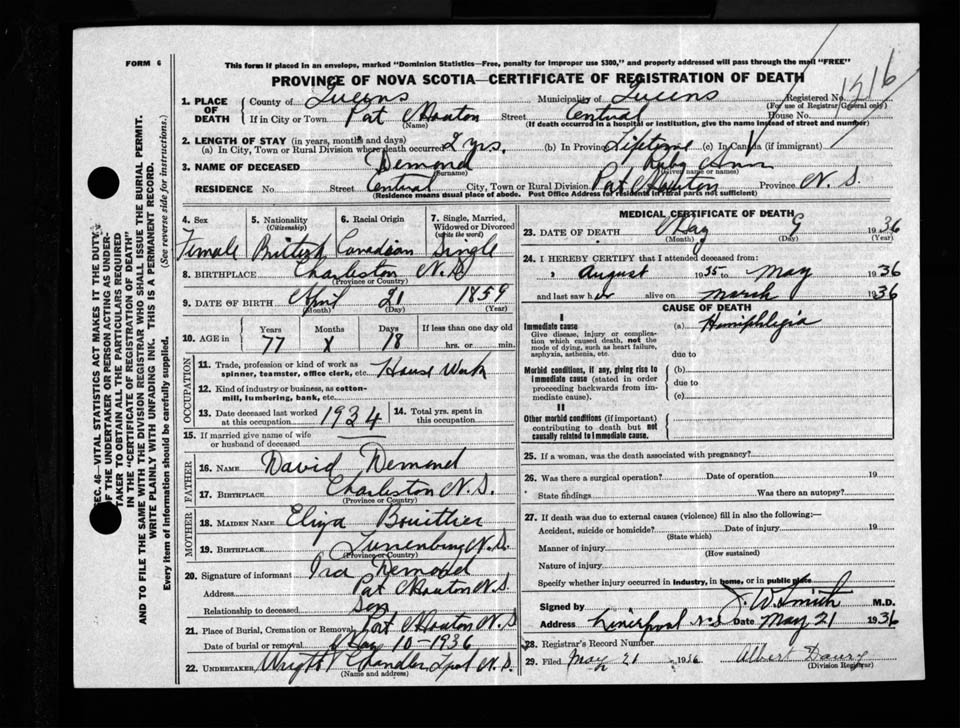 FORM 6
This form if placed in an envelope, marked "Dominion Statistics—Free, penalty for improper use $300," and properly addressed will pass through the mail "FREE"
PROVINCE OF NOVA SCOTIA—CERTIFICATE OF REGISTRATION OF DEATH
1. PLACE OF DEATH
County of Queens Municipality of Queens Registered No. 1216
(For use of Registrar General only)
If in City or Town Port Mouton Street Central House No.
(Name) (If death occurred in a hospital or institution, give the name instead of street and number)
2. LENGTH OF STAY (in years, months and days)
(a) In City, Town or Rural Division where death occurred 2 yrs. (b) In Province Lifetime (c) In Canada (if immigrant)
3. NAME OF DECEASED Demond Ruby Ann
(Surname) (Given name or names)
RESIDENCE No. Street Central City, Town or Rural Division Port Mouton Province N. S.
(Residence means usual place of abode. Post Office Address for Residents in rural parts not sufficient)
4. Sex
Female
5. Nationality
(Citizenship)
British
6. Racial Origin
Canadian
7. Single, Married, Widowed or Divorced
(write the word)
Single
8. BIRTHPLACE Charleston N. S.
(Province or Country)
9. DATE OF BIRTH April 21 1859
(Month) (Day) (Year)
10. AGE in
Years Months Days If less than one day old
77 X 18 hrs. or min.
OCCUPATION
11. Trade, profession or kind of work as spinner, teamster, office clerk, etc. House Work
12. Kind of industry or business, as cotton-mill, lumbering, bank, etc.
13. Date deceased last worked at this occupation 1934
14. Total yrs. spent in this occupation
15. If married give name of wife or husband of deceased
FATHER
16. NAME David Demond
17. BIRTHPLACE Charleston N. S.
(Province or Country)
MOTHER
18. MAIDEN NAME Eliza
19. BIRTHPLACE Lunenburg N. S.
(Province or Country)
20. Signature of informant Ira Demond
Address Port Mouton N. S.
Relationship to deceased Son
21. Place of Burial, Cremation or Removal Port Mouton N. S.
Date of burial or removal May 10-1936
22. UNDERTAKER Chandler Lpool N. S.
(Name and address)
MEDICAL CERTIFICATE OF DEATH
23. DATE OF DEATH May 9 1936
(Month) (Day) (Year)
24. I HEREBY CERTIFY that I attended deceased from:
August 1935 to May 1936
and last saw her alive on March 1936
CAUSE OF DEATH
I
Immediate cause
Give disease, injury or complication which caused death, not the mode of dying, such as heart failure, asphyxia, asthenia, etc.
(a) Hemiphlegia
due to
Morbid conditions, if any, giving rise to immediate cause (stated in order proceeding backwards from immediate cause).
(b)
due to
(c)
II
Other morbid conditions (if important) contributing to death but not causally related to immediate cause.
25. If a woman, was the death associated with pregnancy?
26. Was there a surgical operation? Date of operation 19
State findings Was there an autopsy?
27. If death was due to external causes (violence) fill in also the following:—
Accident, suicide or homicide? Date of injury 19
(State which)
Manner of injury
(How sustained)
Nature of injury
Specify whether injury occurred in industry, in home, or in public place
Signed by J. W. Smith M.D.
Address Liverpool N.S. Date May 21 1936
28. Registrar's Record Number
29. Filed May 21 1936 Albert
(Division Registrar)
SEC. 46—VITAL STATISTICS ACT MAKES IT THE DUTY OF THE UNDERTAKER OR PERSON ACTING AS UNDERTAKER TO OBTAIN ALL THE PARTICULARS REQUIRED IN THE "CERTIFICATE OF REGISTRATION OF DEATH"
AND TO FILE THE SAME WITH THE DIVISION REGISTRAR WHO SHALL ISSUE THE BURIAL PERMIT.
WRITE PLAINLY WITH UNFADING INK. THIS IS A PERMANENT RECORD.
Every item of information should be carefully supplied. (See reverse side for instructions.)